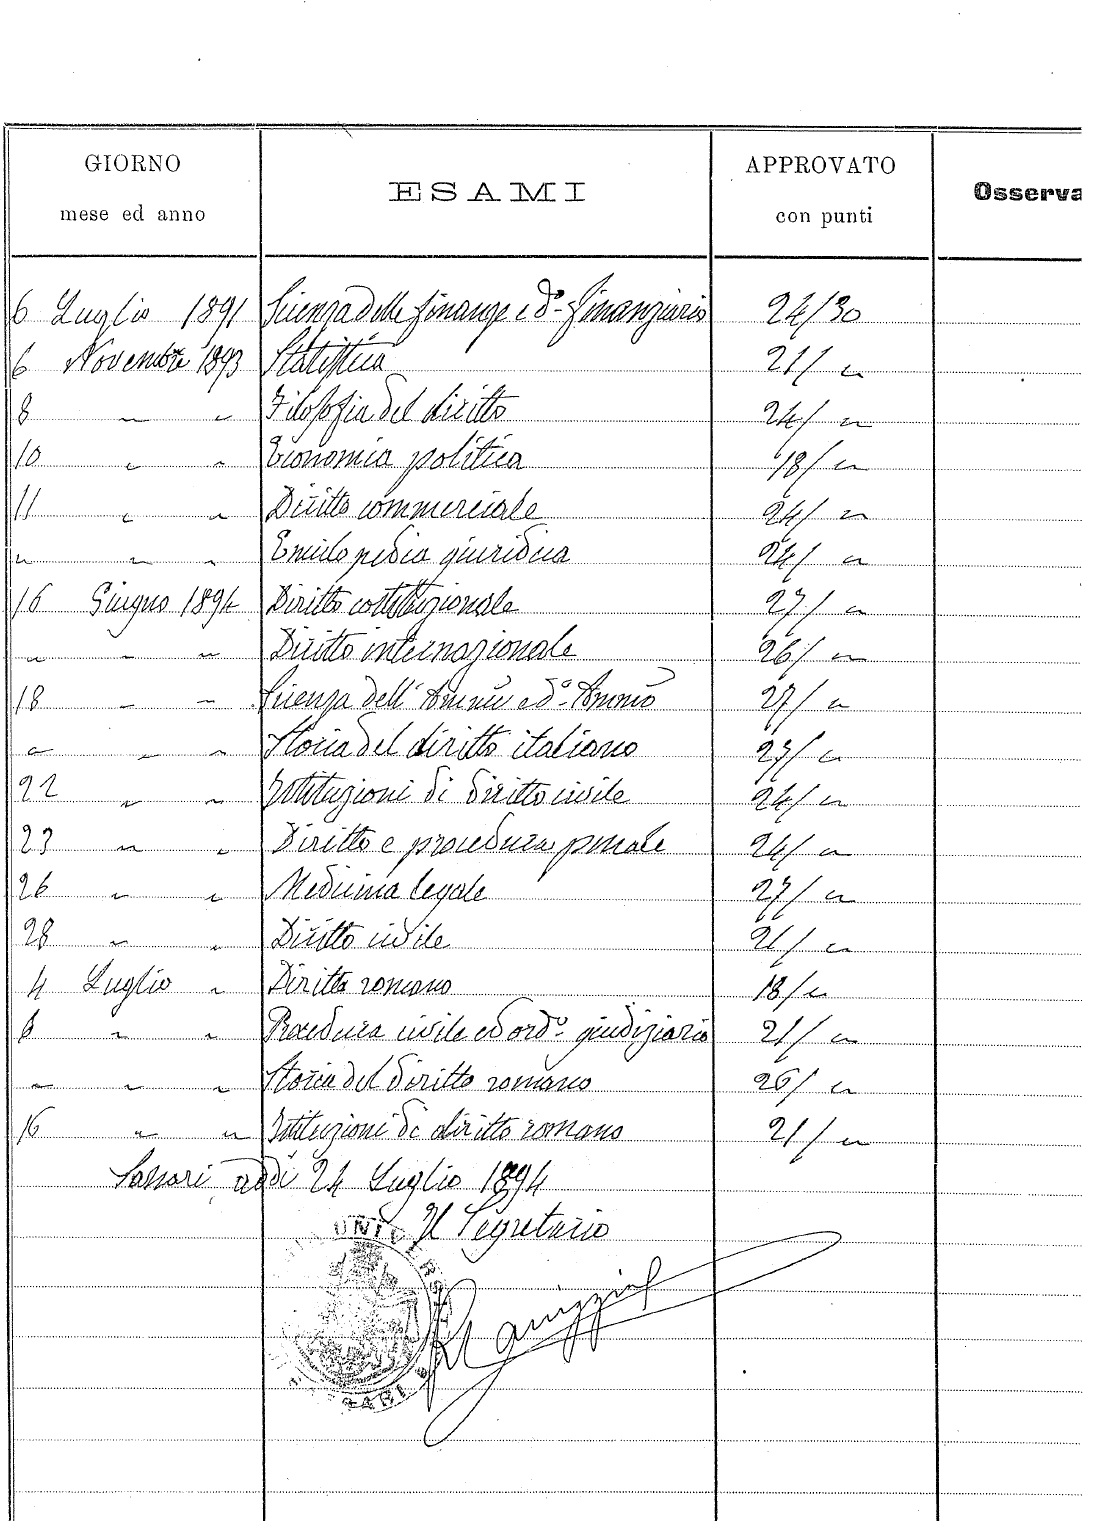 GIORNO mese ed anno ESAMI APPROVATO con punti Osserva
6 Luglio 1891 Scienza delle finanze e d.º finanziario 24/30
6 Novembre 1893 Statistica 21/ "
8 " " Filosofia del diritto 24/ "
10 " " Economia politica 18/ "
11 " " Diritto commerciale 24/ "
" " " Enciclopedia giuridica 24/ "
16 Giugno 1894 Diritto costituzionale 27/ "
" " " Diritto internazionale 26/ "
18 " " Scienza dell' Ammne e d.º Ammvo 27/ "
" " " Storia del diritto italiano 27/ "
22 " " Istituzioni di diritto civile 24/ "
23 " " Diritto e procedura penale 24/ "
26 " " Medicina legale 27/ "
28 " " Diritto civile 21/ "
4 Luglio " Diritto romano 18/ "
6 " " Procedura civile ed ord.º giudiziario 21/ "
" " " Storia del diritto romano 26/ "
16 " " Istituzioni di diritto romano 21/ "
Sassari addì 24 Luglio 1894
Il Segretario